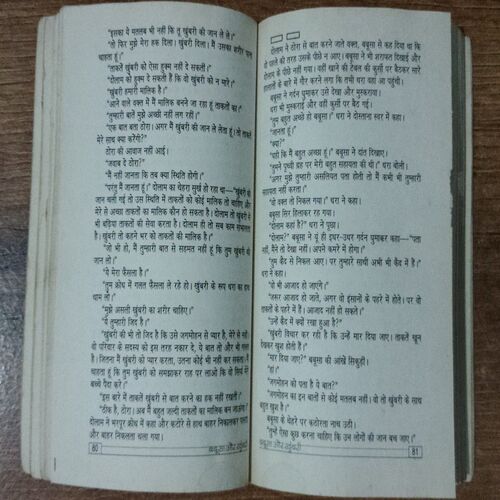 "इसका ये मतलब भी नहीं कि तू खुंबरी की जान ले ले।"
"तो फिर मुझे मेरा हक दिला। खुंबरी दिला। मैं उसका शरीर पाना
चाहता हूं।"
"ताकतें खुंबरी को ऐसा हुक्म नहीं दे सकतीं।"
"दोलाम को हुक्म दे सकती हैं कि वो खुंबरी को न मारे।"
"खुंबरी हमारी मालिक है।"
"आने वाले वक्त में मैं मालिक बनने जा रहा हूं ताकतों का।"
"तुम्हारी बातें मुझे अच्छी नहीं लग रहीं।"
"एक बात बता ठोरा। अगर मैं खुंबरी की जान ले लेता हूं। तो ताकतें
मेरे साथ क्या करेंगी?"
ठोरा की आवाज नहीं आई।
"जवाब दे ठोरा?"
"मैं नहीं जानता कि तब क्या स्थिति होगी।"
"परंतु मैं जानता हूं।" दोलाम का चेहरा सुर्ख हो रहा था—"खुंबरी की
जान चली गई तो उस स्थिति में ताकतों को कोई मालिक तो चाहिए और
मेरे से अच्छा ताकतों का मालिक कौन हो सकता है। दोलाम तो खुंबरी से
भी बढ़िया ताकतों की सेवा करता है। दोलाम ही तो सब काम संभालता
है। खुंबरी तो कहने भर को ताकतों की मालिक है।"
"जो भी हो, मैं तुम्हारी बात से सहमत नहीं हूं कि तुम खुंबरी की
जान लो।"
"ये मेरा फैसला है।"
"तुम क्रोध में गलत फैसला ले रहे हो। खुंबरी के रूप धरा का हक
था।"
"मुझे असली खुंबरी का शरीर चाहिए।"
"ये तुम्हारी जिद है।"
"खुंबरी की भी तो जिद है कि उसे जगमोहन से प्यार है, मेरे से नहीं।
वो परिवार के सदस्य को इस तरह नकार दे, ये बात तो और भी गलत
है। जितना मैं खुंबरी को प्यार करता, उतना कोई भी नहीं कर सकता। मैं
चाहता हूं कि तुम खुंबरी को समझाकर राह पर लाओ कि वो सिर्फ मेरे
बच्चे पैदा करे।"
"इस बारे में ताकतें खुंबरी से बात करने का हक नहीं रखतीं।"
"ठीक है, ठोरा। अब मैं बहुत जल्दी ताकतों का मालिक बन जाऊंगा।"
दोलाम ने भरपूर क्रोध में कहा और कटोरे से हाथ बाहर निकालकर पलटा
और बाहर निकलता चला गया।
80
बबूसा और खुंबरी
दोलाम ने ठोरा से बात करने जाते वक्त, बबूसा से कह दिया था कि
वो पहले की तरह उसके पीछे न आए। बबूसा ने भी शराफत दिखाई और
दोलाम के पीछे नहीं गया। वहीं खाने की टेबल की कुर्सी पर बैठकर सारे
हालातों के बारे में गौर करने लगा कि तभी धरा वहां आ पहुंची।
बबूसा ने गर्दन घुमाकर उसे देखा और मुस्कराया।
धरा भी मुस्कराई और वहीं कुर्सी पर बैठ गई।
"तुम बहुत अच्छे हो बबूसा।" धरा ने दोस्ताना स्वर में कहा।
"जानता हूं।"
"क्या?"
"यही कि मैं बहुत अच्छा हूं।" बबूसा ने दांत दिखाए।
"तुमने पृथ्वी ग्रह पर मेरी बहुत सहायता की थी।" धरा बोली।
"अगर मुझे तुम्हारी असलियत पता होती तो मैं कभी भी तुम्हारी
सहायता नहीं करता।"
"वो वक्त तो निकल गया।" धरा ने कहा।
बबूसा सिर हिलाकर रह गया।
"दोलाम कहां है?" धरा ने पूछा।
"दोलाम?" बबूसा ने यूं ही इधर-उधर गर्दन घुमाकर कहा—"पता
नहीं, मैंने तो देखा नहीं। अपने कमरे में होगा।"
"तुम कैद से निकल आए। पर तुम्हारे साथी अभी भी कैद में हैं।"
धरा ने कहा।
"वो भी आजाद हो जाएंगे।"
"जरूर आजाद हो जाते, अगर वो इंसानों के पहरे में होते। पर वो
ताकतों के पहरे में हैं। आजाद नहीं हो सकते।"
"उन्हें कैद में क्यों रखा हुआ है?"
"खुंबरी विचार कर रही है कि उन्हें मार दिया जाए। ताकतें खून
देखकर खुश होती हैं।"
"मार दिया जाए?" बबूसा की आंखें सिकुड़ीं।
"हां।"
"जगमोहन को पता है ये बात?"
"जगमोहन का इन बातों से कोई मतलब नहीं। वो तो खुंबरी के साथ
बहुत खुश है।"
बबूसा के चेहरे पर कठोरता नाच उठी।
"तुम्हें ऐसा कुछ करना चाहिए कि उन लोगों की जान बच जाए।"
बबूसा और खुंबरी
81